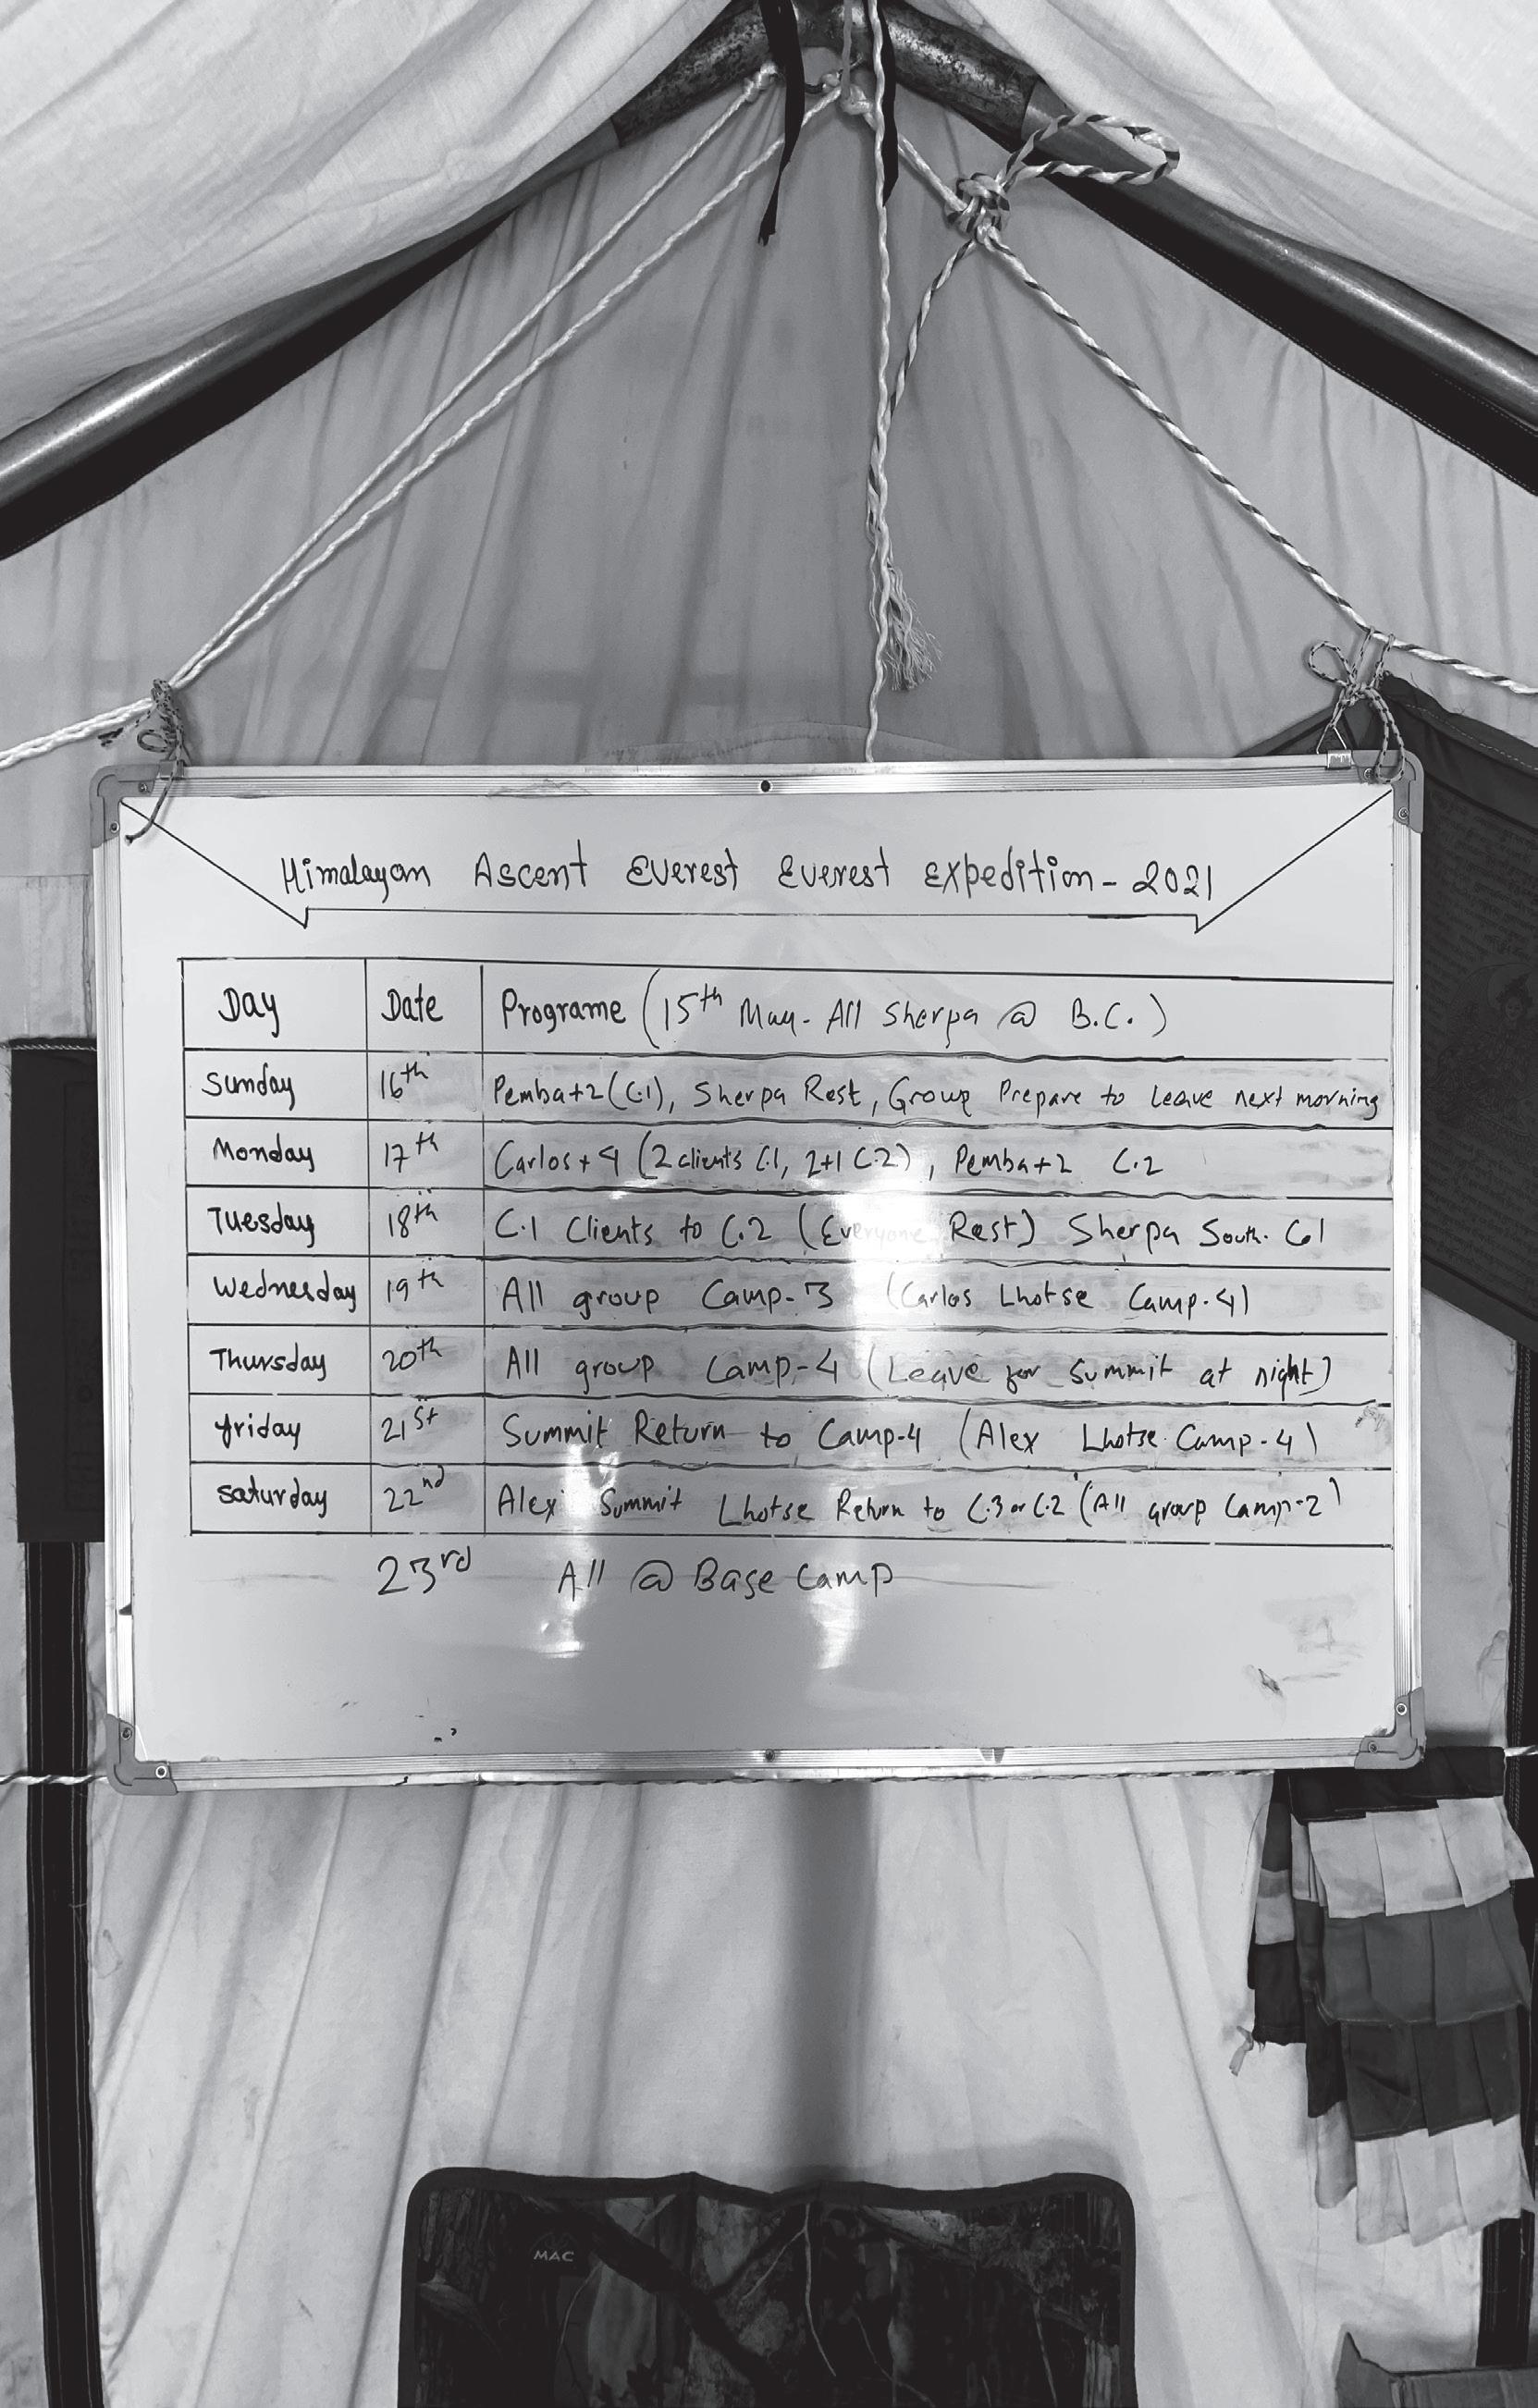 Himalayan Ascent Everest Everest Expedition - 2021
Day Date Programe (15th May. All Sherpa @ B.C.)
Sunday 16th Pemba+2 (C.1), Sherpa Rest, Group Prepare to Leave next morning
Monday 17th Carlos + 4 (2 clients C.1, 2+1 C.2), Pemba+2 C.2
Tuesday 18th C.1 Clients to C.2 (Everyone Rest) Sherpa South. Col
Wednesday 19th All group Camp-3 (Carlos Lhotse Camp-4)
Thursday 20th All group Camp-4 (Leave for Summit at night)
friday 21st Summit Return to Camp-4 (Alex Lhotse Camp-4)
Saturday 22nd Alex Summit Lhotse Return to C.3 or C.2 (All group Camp-2)
23rd All @ Base Camp
MAC